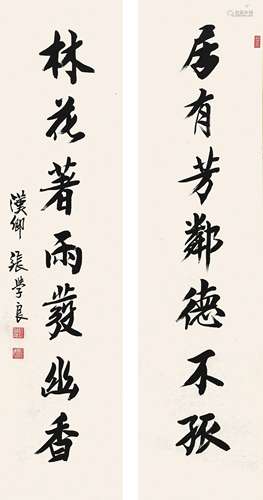 居有芳鄰德不孤
林花著雨發幽香
漢卿 張學良